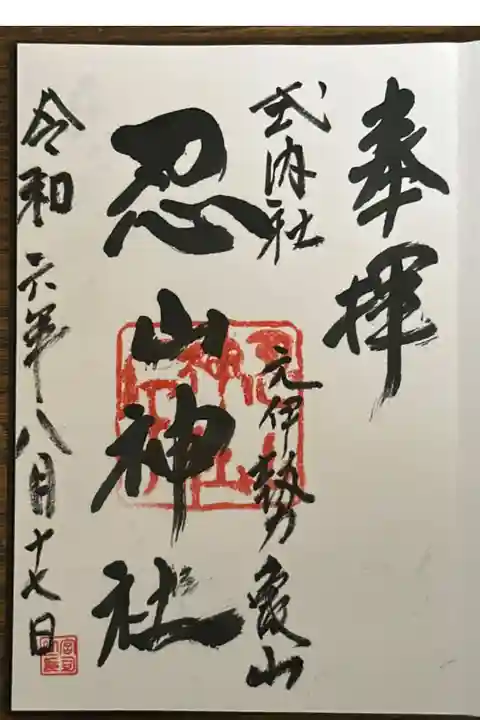 奉拝
式内社 元伊勢 亀山
忍山神社
令和六年八月十七日